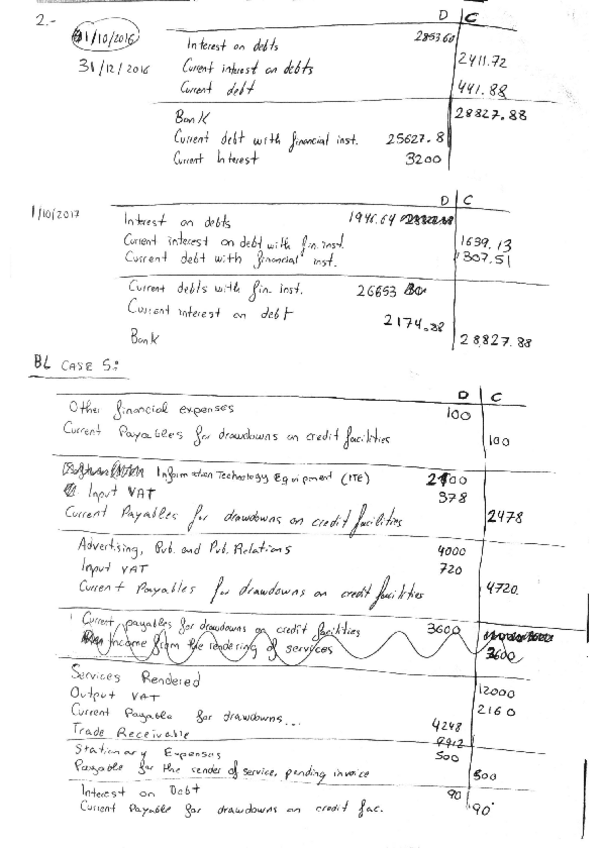 2.-
D C
31/10/2016
Interest on debts 2853.60
31/12/2016 Current interest on debts 2411.72
Current debt 441.88
Bank 28827.88
Current debt with financial inst. 25627.8
Current Interest 3200
D C
1/10/2017
Interest on debts 1946.64
Current interest on debt with fin. inst. 1639.13
Current debt with financial inst. 307.51
Current debts with fin. inst. 26653
Current interest on debt 2174.88
Bank 28827.88
BL CASE 5:
D C
Other financial expenses 100
Current Payables for drawdowns on credit facilities 100
Information Technology Equipment (ITE) 2100
Input VAT 378
Current Payables for drawdowns on credit facilities 2478
Advertising, Pub. and Pub. Relations 4000
Input VAT 720
Current Payables for drawdowns on credit facilities 4720
Current payables for drawdowns on credit facilities 3600
Income from the rendering of services 3600
Services Rendered 12000
Output VAT 2160
Current Payable for drawdowns... 4248
Trade Receivable 9912
Stationary Expenses 500
Payable for the render of service, pending invoice 500
Interest on Debt 90
Current Payable for drawdowns on credit fac. 90